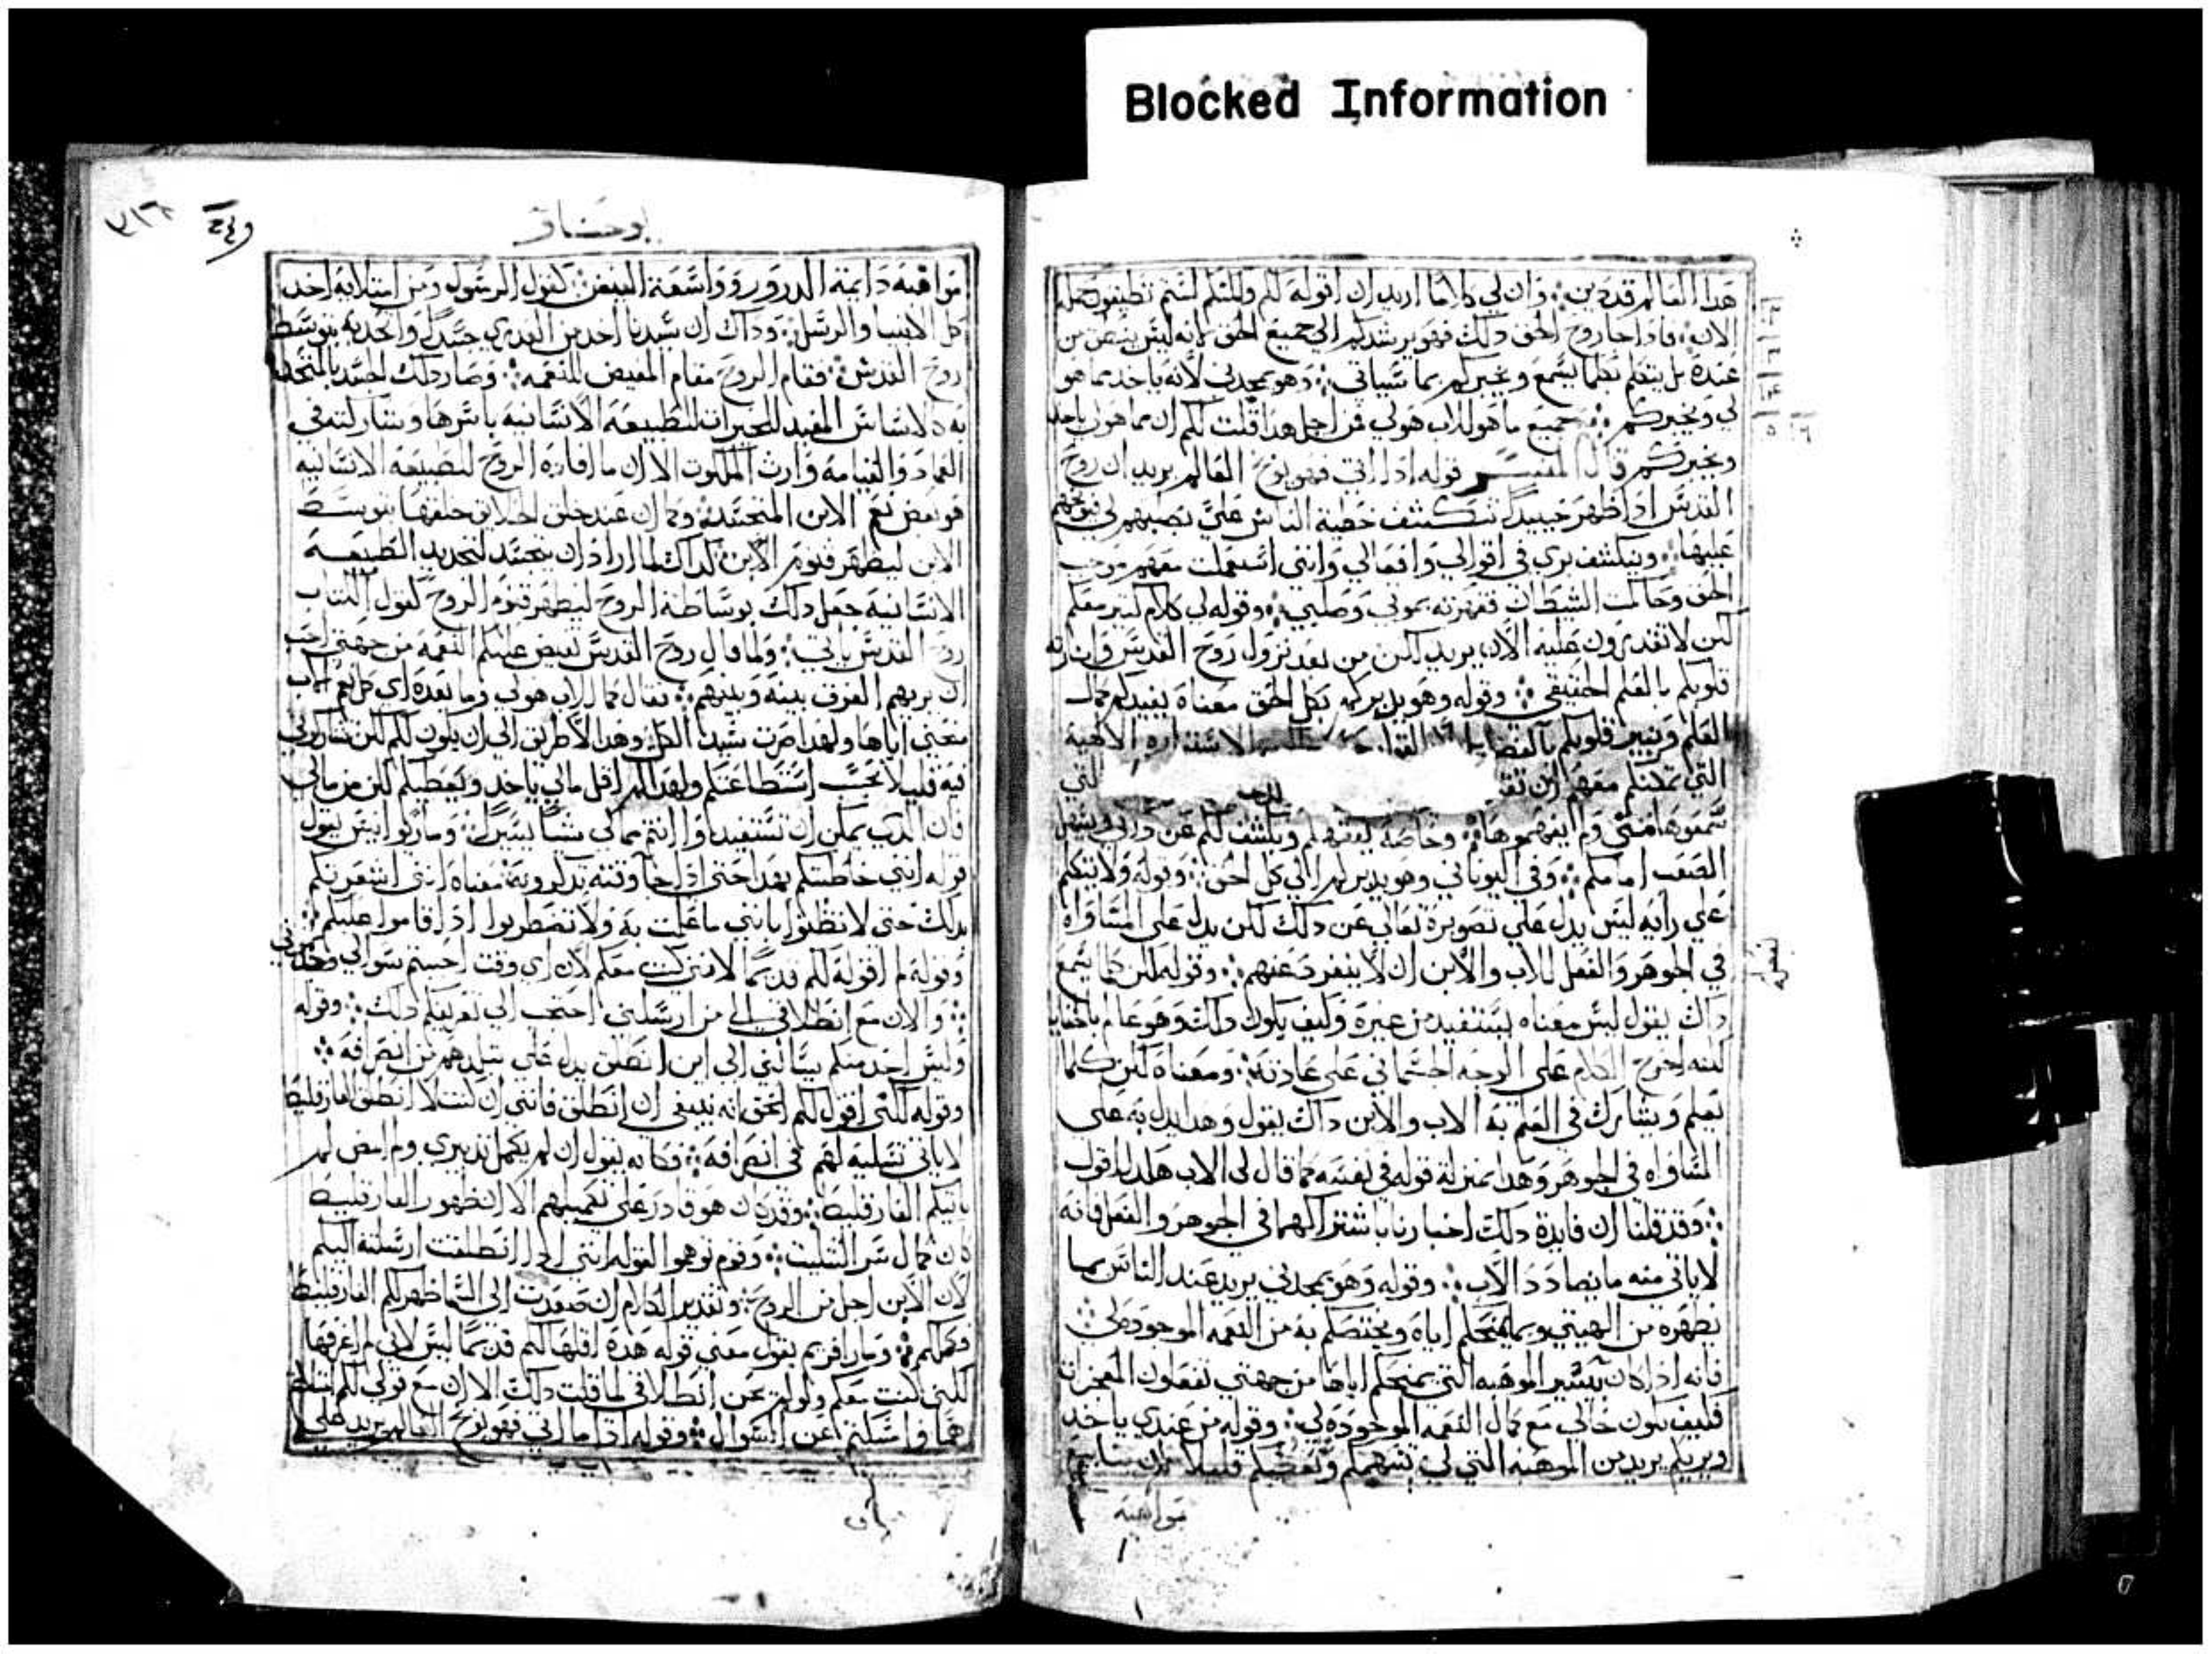 Blocked Information
هذا العالم قد دين ۞ وان لي كلاما اريد ان اقوله لكم ولكنكم لستم تطيقون حمله
الان ۞ فاذا جا روح الحق ذلك فهو يرشدكم الي جميع الحق لانه ليس ينطق من
عنده بل يتكلم بكلما يسمع ويخبركم بما سياتي ۞ وهو يمجدني لانه ياخد مما هو
لي ويخبركم ۞ جميع ما هو للاب هو لي فمن اجل هذا قلت لكم ان مما هو لي ياخد
ويخبركم قال المفسر قوله اذا اتي فهو يوبخ العالم يريد ان روح
القدس اذا ظهر حينيد تنكشف خطية الناس علي
عليها ۞ وينكشف بري في اقوالي وافعالي وانني استعملت معهم موجب
الحق وحاكمت الشيطان فقهرته بموتي وصلبي ۞ وقوله لي كلام كتير معكم
لكن لا تقدرون عليه الان يريد لكن من بعد نزول روح القدس وانارته
قلوبكم بالعلم الحقيقي ۞ وقوله وهو يدبركم بكل الحق معناه يفيدكم كمال
العلم وينير قلوبكم الالهية
التي
سمعوها مني ولم يفهموها ۞ وخاصة ويكشف لكم عن
الصعب امامكم ۞ وفي اليوناني وهو يدبركم الي كل الحق ۞ وقوله ولا يتكلم
علي رايه ليس يدل علي تصويرة تعالي عن ذلك لكن يدل علي المساواه
في الجوهر والفعل للاب والابن ان لا ينفرد عنهم ۞ وقوله لكن كما يسمع
ذاك يقول ليس معناه يستفيد من غيره وكيف يكون ذلك وهو عالم بالخفايا
لكنه اخرج الكلام علي الوجه الجسماني علي عادته ۞ ومعناه لكن كلما
يعلم ويشارك في العلم به الاب والابن ذاك يقول وهذا يدل به علي
المساواه في الجوهر وهذا بمنزلة قوله في نفسه كما قال لي الاب هكذا اقول
۞ وقد قلنا ان فايدة ذلك اخبارنا باشتراكهما في الجوهر والفعل فانه
لا ياتي منه ما يضادد الاب ۞ وقوله وهو يمجدني يريد عند الناس بما
يظهره من الهيتي وبما يمنحكم اياه ويختصكم به من النعمه الموجوده لي
فانه اذا كان بيسير الموهبه التي يمنحكم اياها من جهتي تفعلون المعجزات
فكيف يكون حالي مع كمال النعمه الموجوده لي ۞ وقوله من عندي ياخد
ويريكم يريد من الموهبه التي لي يفهمكم ويعطيكم قليلا لان
مواهبه
يوحنا
مواهبه دايمة الدرور وواسعة الفيض كقول الرسول ومن امتلايه اخد
كل الانبيا والرسل ۞ وذاك ان سيدنا اخد من العذري جسدا واتحد به بتوسط
روح القدس ۞ فقام الروح مقام المفيض للنعمه ۞ وصار ذلك الجسد المتحد
به كالاساس المفيد للخيرات للطبيعة الانسانيه باسرها ويشاركته في
العماد والقيامة وارث الملكوت الا ان ما افاده الروح للطبيعه الانسانيه
هو بعض نعم الابن المتجسد ۞ وكما ان عند خلق الخلايق خلقها بتوسط
الابن ليظهر قنوم الابن كذاك لما اراد ان يتجسد لتجديد الطبيعة
الانسانيه جعل ذلك بوساطة الروح ليظهر قنوم الروح كقول الكتاب
روح القدس ياتي ۞ ولما قال روح القدس تفيض عليكم النعمه من جهتي احب
ان يريهم الفرق بينه وبينهم ۞ فقال كما للاب هو لي وما بعده اي كل نعم الاب
معني اياها ولهذا صرت سيد الكل وهذا لا طريق الي ان يكون لكم لكن تشاركوني
فيه قليلا بحسب استطاعتكم ولهذا لم اقل مالي ياخد ويعطيكم لكن من مالي
فان الذي يمكن ان تستفيدوا انتم مما لي شيا يسيرا ۞ ومار يوانيس يقول
قوله انني خاطبتكم بهذا حتي اذا جا وقته تذكرونه ۞ معناه انني اشعرتكم
بذلك حتي لا تظنوا بانني ما علمت به ولا تضطربوا اذا قاموا عليكم ۞
وقوله لم اقوله لكم قديما لانني كنت معكم لان اي وقت احببتم سوالي وجدتموني
۞ والان مع انطلاقي الي من ارسلني احتجت الي تعريفكم ذلك ۞ وقوله
وليس احد منكم يسالني الي اين انطلق يدل علي تبلدهم من انصرافه ۞
وقوله لكني اقول لكم الحق انه ينبغي ان انطلق فانني ان كنت لا انطلق الفارقليط
لا ياتي تسليه لهم في انصرافه ۞ فكانه يقول ان لم يكمل تدبيري ولم امض لم
ياتيكم الفارقليط ۞ وقد كان هو قادر علي تكميلهم الا ان ظهور الفارقليط
كان كمال سر التثليث ۞ وقوم توهموا لقوله انني اذا انطلقت ارسلته اليكم
لان الابن اجل من الروح ۞ وتقدير الكلام ان صعدت الي السما ظهر لكم الفارقليط
وكملكم ۞ ومار افريم يقول معني قوله هذه لم اقلها لكم قديما ليس لاني لم اعرفها
لكنني كنت معكم ولو لم يحن انطلاقي لما قلت ذلك الا ان مع قولي لكم
هما وامسكتم عن السوال ۞ وقوله اذا ما اتي فهو يوبخ العالم يريد علي